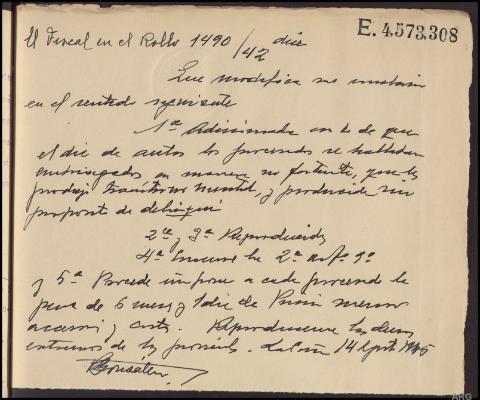 E. 4.573.308
El Fiscal en el Rollo 1490/42 dice
Que modifica sus
en el sentido siguiente
1ª Adicionada en el de que
el día de autos los procesados se hallaban
embriagados en manera no fortuita, que les
produjo trastorno mental, y producida sin
proposito de delinquir
2ª y 3ª Reproducidas
4ª la 2ª artº 9º
y 5ª Procede imponer a cada procesado la
pena de 6 meses y 1 día de Prisión menor
accesorias y costas. Reproducense los demas
extremos de las 14 1945
ARG